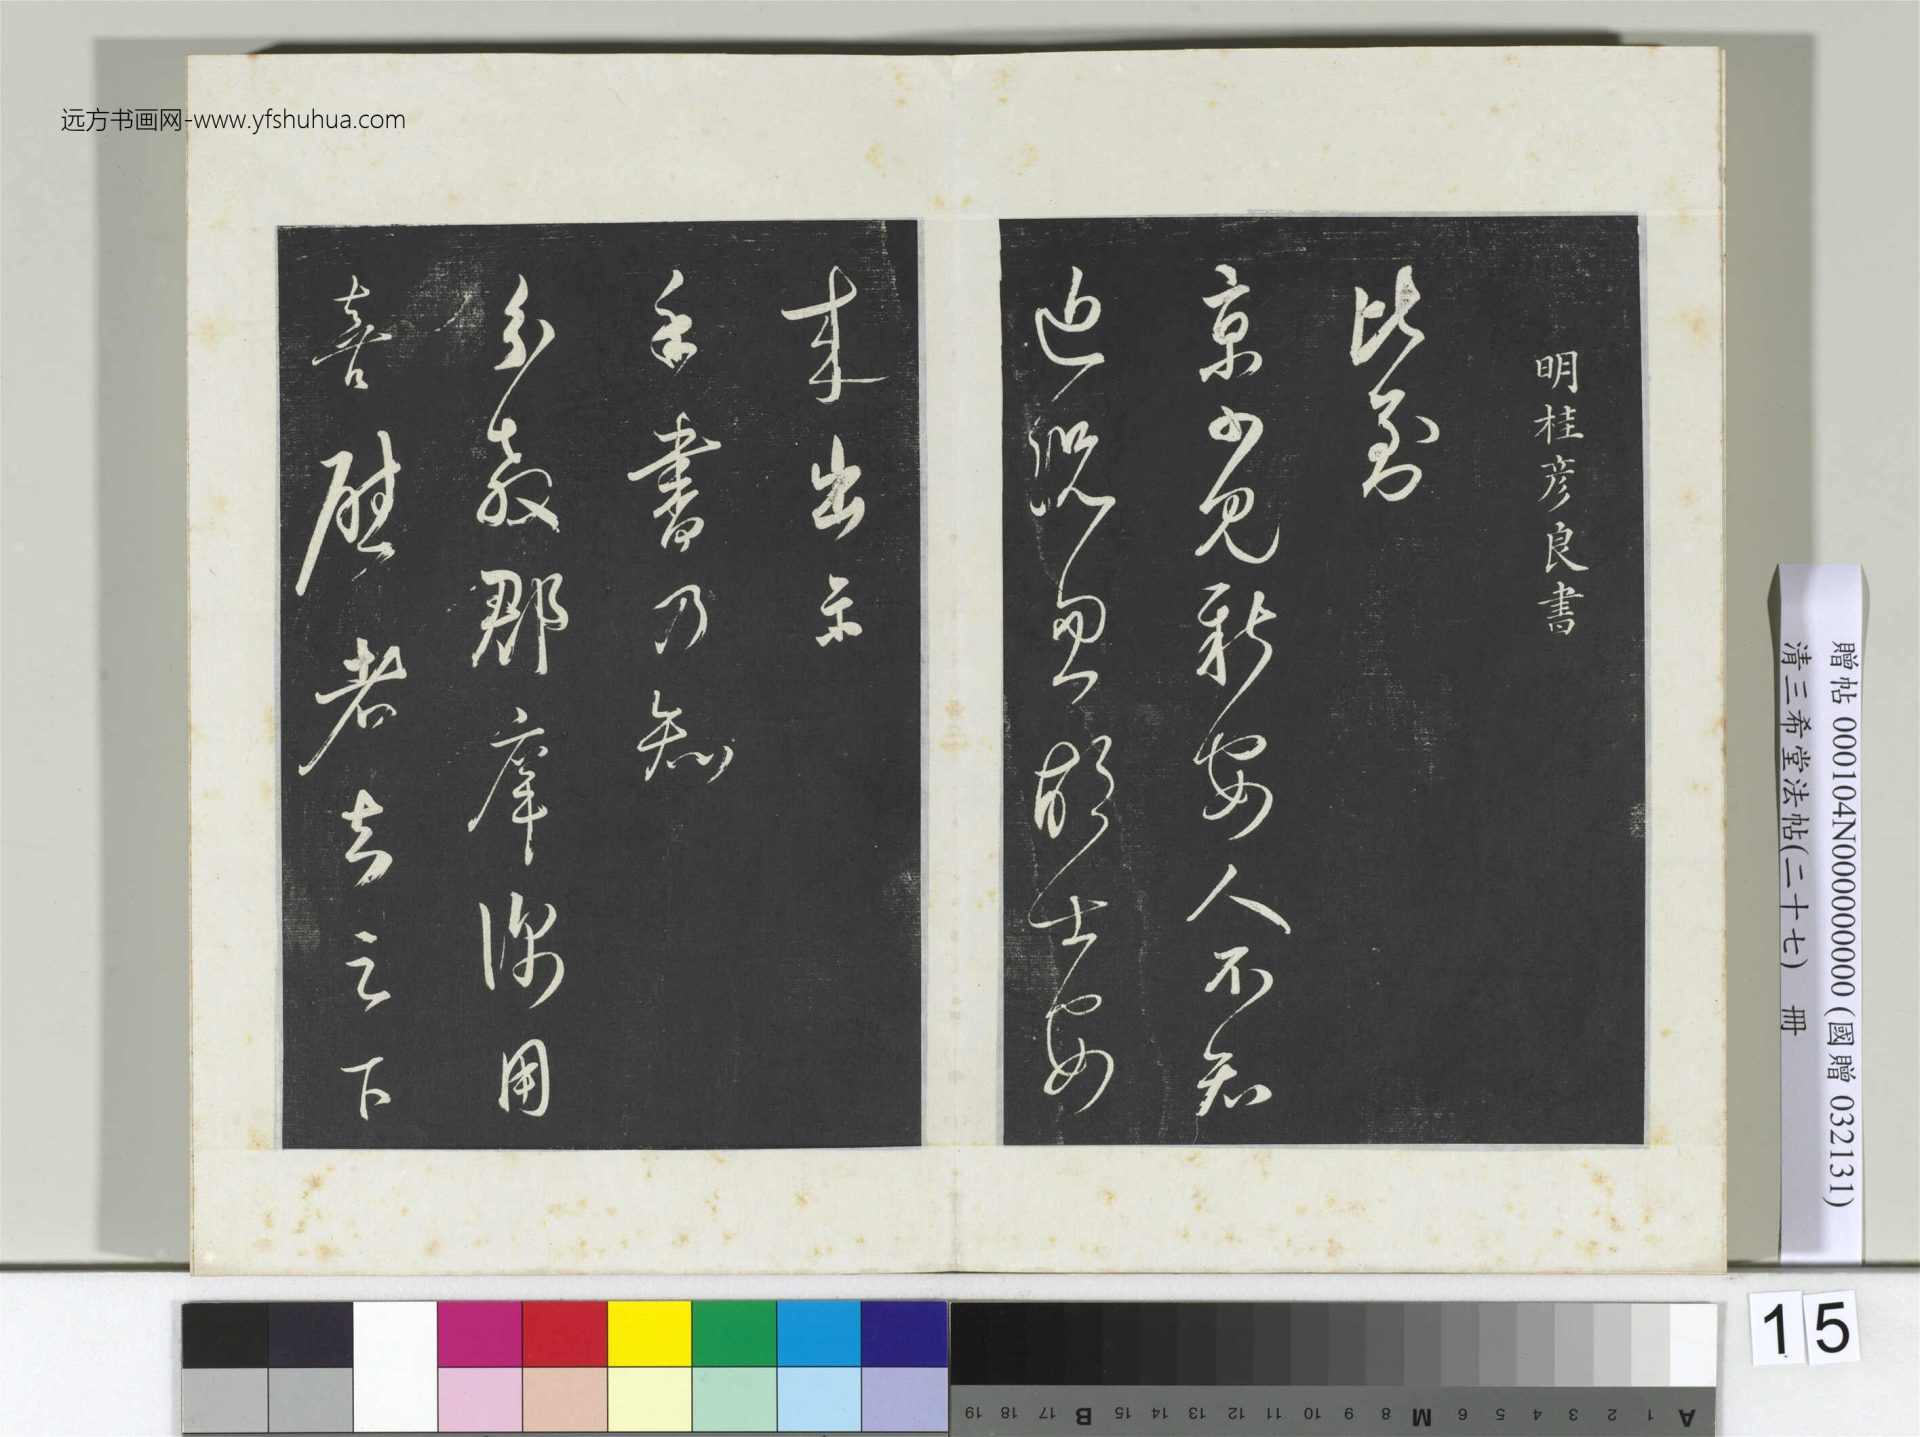 远方书画网-www.yfshuhua.com
明桂彦良書
比到
京口見新安人不知
近況忽胡士安
來出示
手書乃知
分教郡庠深用
喜慰者去之下
贈帖 000104N000000000 (國贈 032131)
清三希堂法帖(二十七) 冊
15
A 1 2 3 4 5 6 M 8 9 10 11 12 13 14 15 B 17 18 19